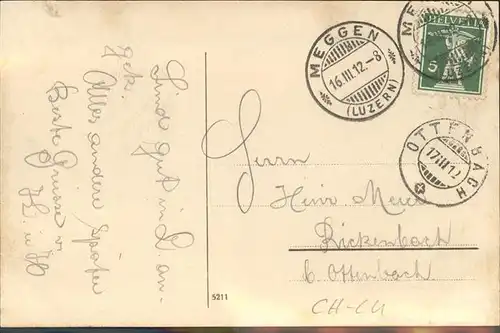 Sind gut in L. an-
gek.
Alles andere später
Beste Grüsse v.
MEGGEN
16.III.12.-8
(LUZERN)
HELVETIA
5
OTTENBACH
17.III.12
Herrn
Heinr. Meier
Rickenbach
b. Ottenbach
CH-LU
5211